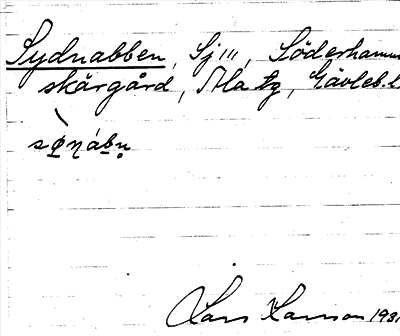 Sydnabben, Sj ''', Söderhamns
skärgård, Ala tg, Gävleb. l.
sø̀ŋábṇ
Lars Larsson 193